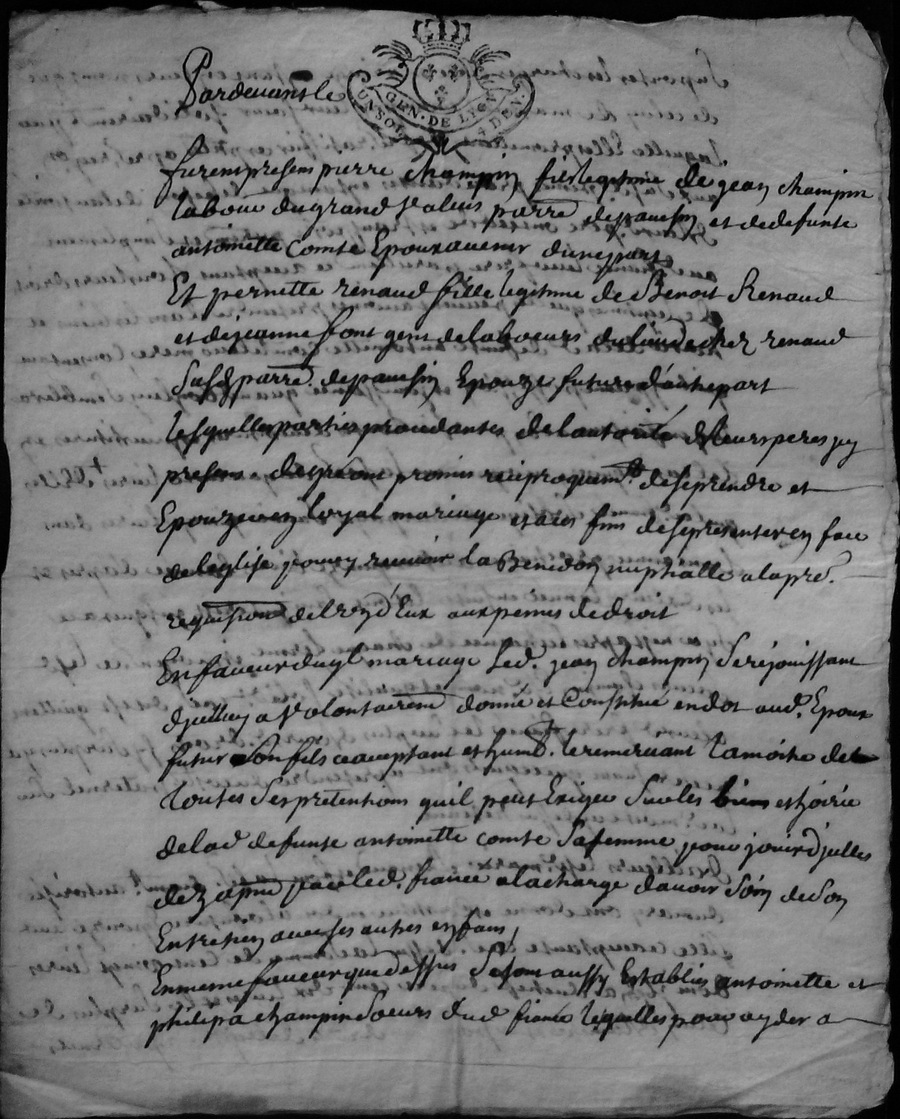 Pardevant le
GEN · DE LYON
UN SOL 4 DEN
furent presens pierre champin fils legitime de jean champin
labour du grand valus parr.e de pausin et de defunte
antoinette Comte Epoux avenir d'une part
Et pernette renaud fille legitime de Benoit Renaud
et de jeanne font gens de laboeurs du lieu de chez renaud
susd parr.e de pausin Epouze future d'autre part
lesquelles parties procedantes de lautorité de leurs peres icy
presens de gré ont promis reciproquem.t de se prendre et
Epouzer en loyal mariage et a ces fins de se presenter en face
de leglise pour y recevoir la Benedon nuptialle a la pre.
requisition de lun d'Eux aux peines de droit
En faveur duql mariage led. jean champin se rejouissant
d'jcelluy a volontairem donné et Constitué en dot aud. Epoux
futur son fils acceptant et humb.t le remerciant la moitie de
toutes ses pretentions qu'il peut Exiger sur les biens et hoirie
de lad defunte antoinette comte sa femme pour jouir d'jcelles
dez a pnt par led. fiancé a la charge d'avoir soin de son
Entretien avec ses autres enfans,
En meme faveur que dessus se sont aussy Establies antoinette et
philipa champin soeurs dud fiancé lesquelles pour ayder a